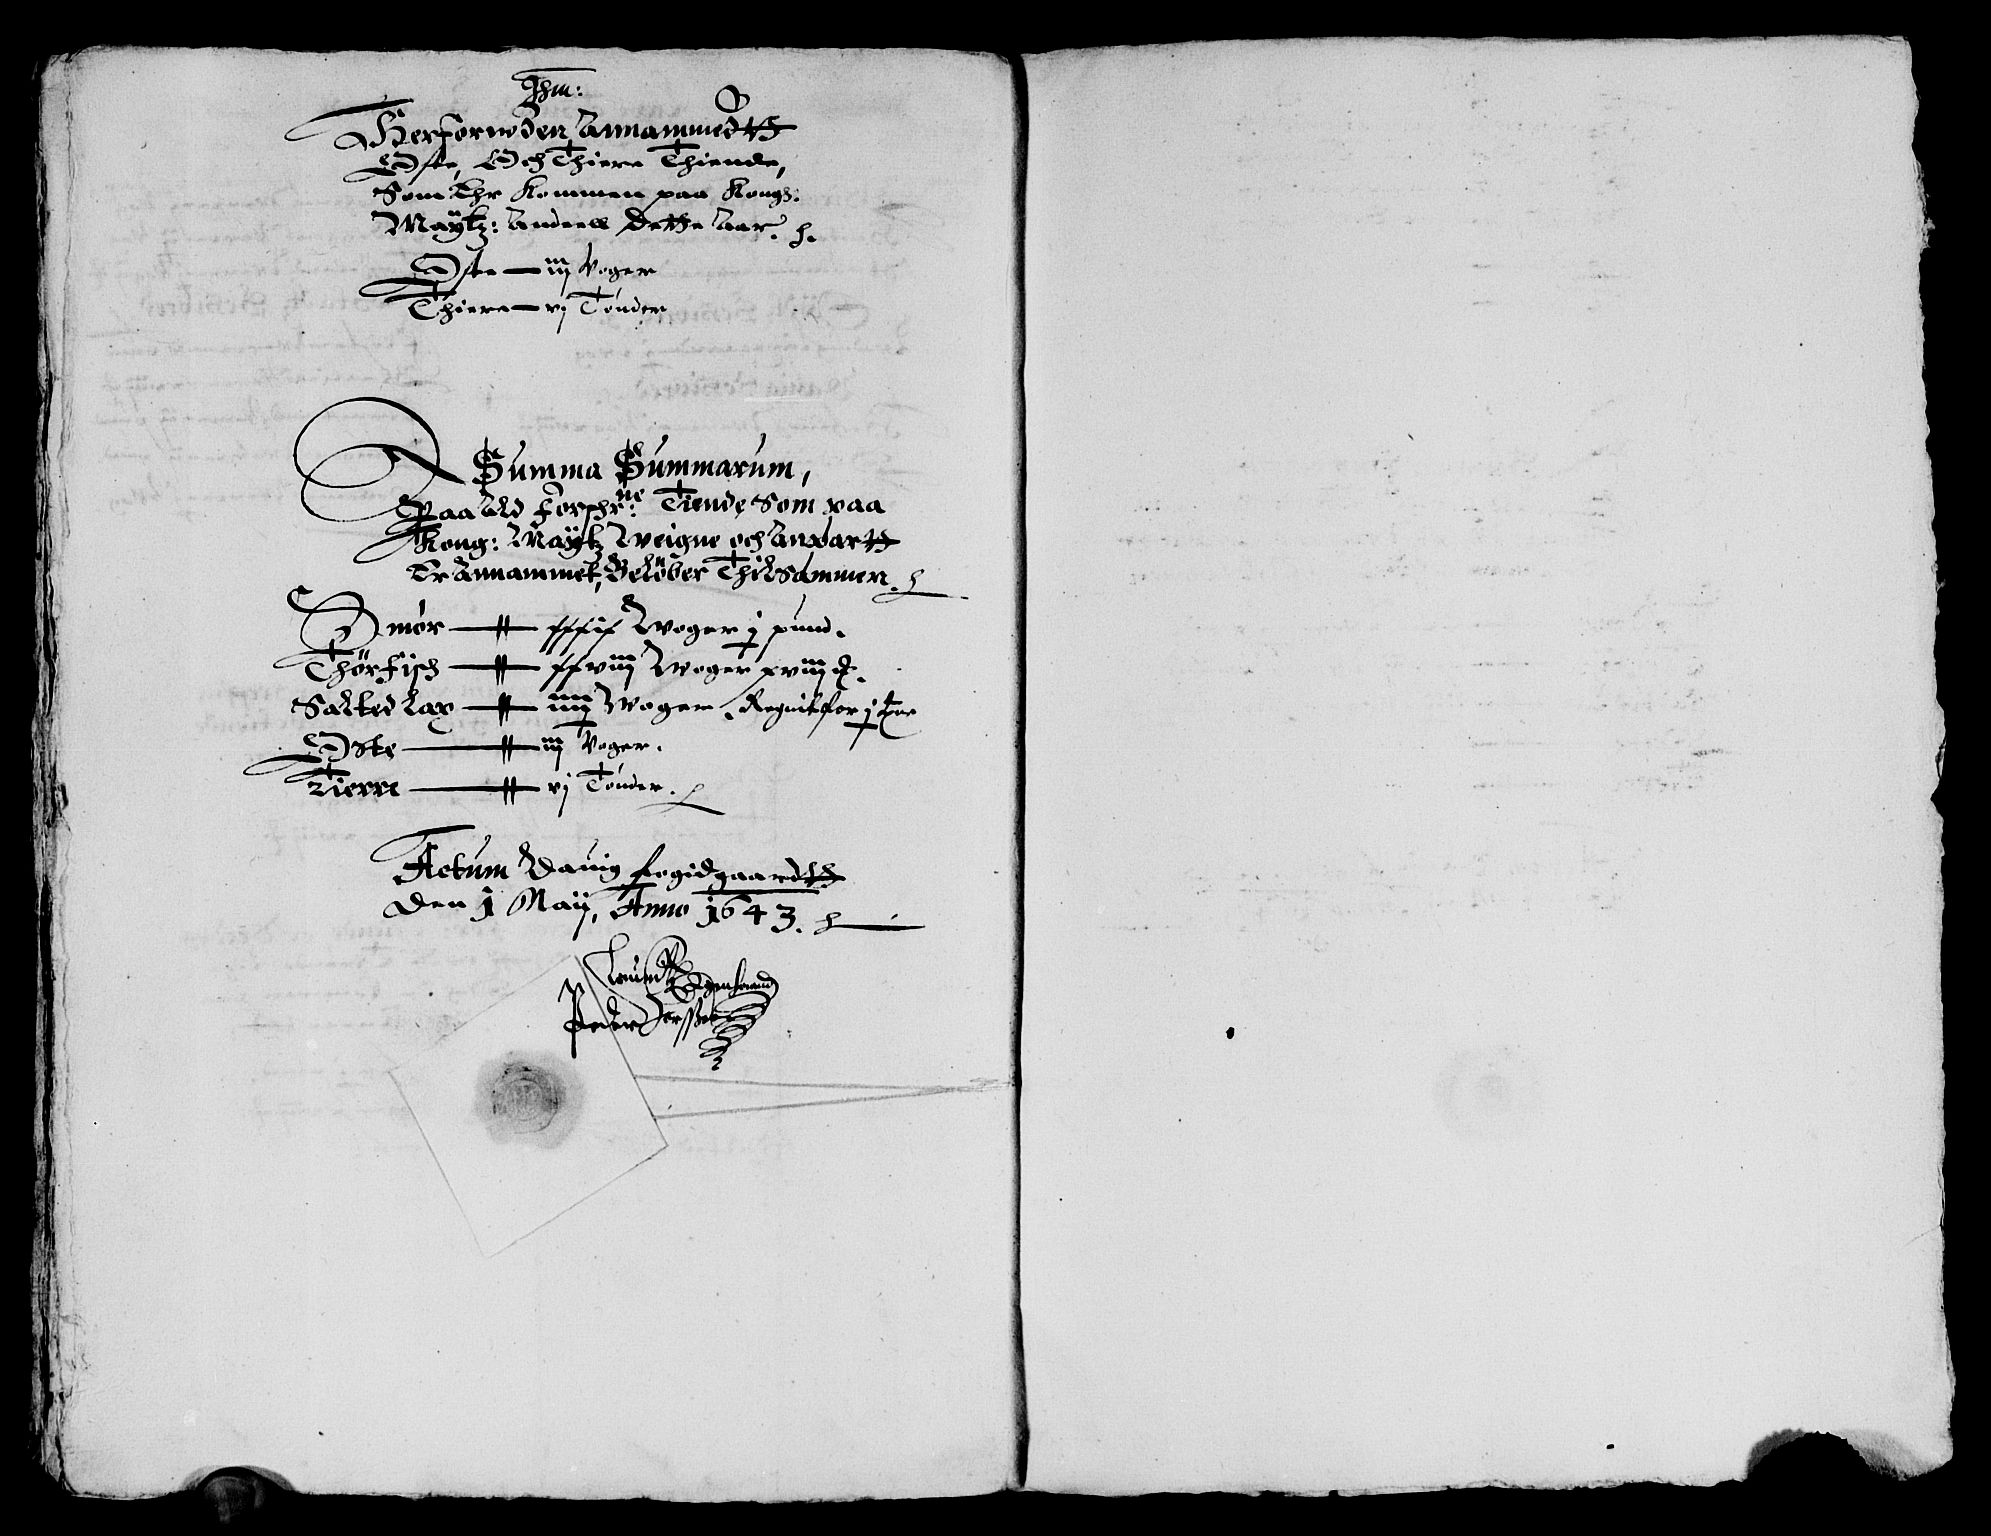 Ihm:
Herforuden Annammedtt
Oste, Och Thiere Thiende,
Som Ehr Kommen paa Kongs:
Maytz: Andeell dette Aar.
Oste — iij Voger
Thiere — vj Tønder
Summa Summarum,
Paa Ald forschr:ne Tiende Som paa
Kong: Maytz Weigne och Anpartt
Er Annammet, Beløber Thilsammen.
Smør — xxxix Woger j pund.
Thørfisch — xxviij Woger xviij
Salted Lax — iiij Woger, Regnit for j
Oste — iij Voger.
Tierre — vj Tønder.
Actum Vauig fogidgaardtt
Den 1 Maij, Anno 1643.
Peder